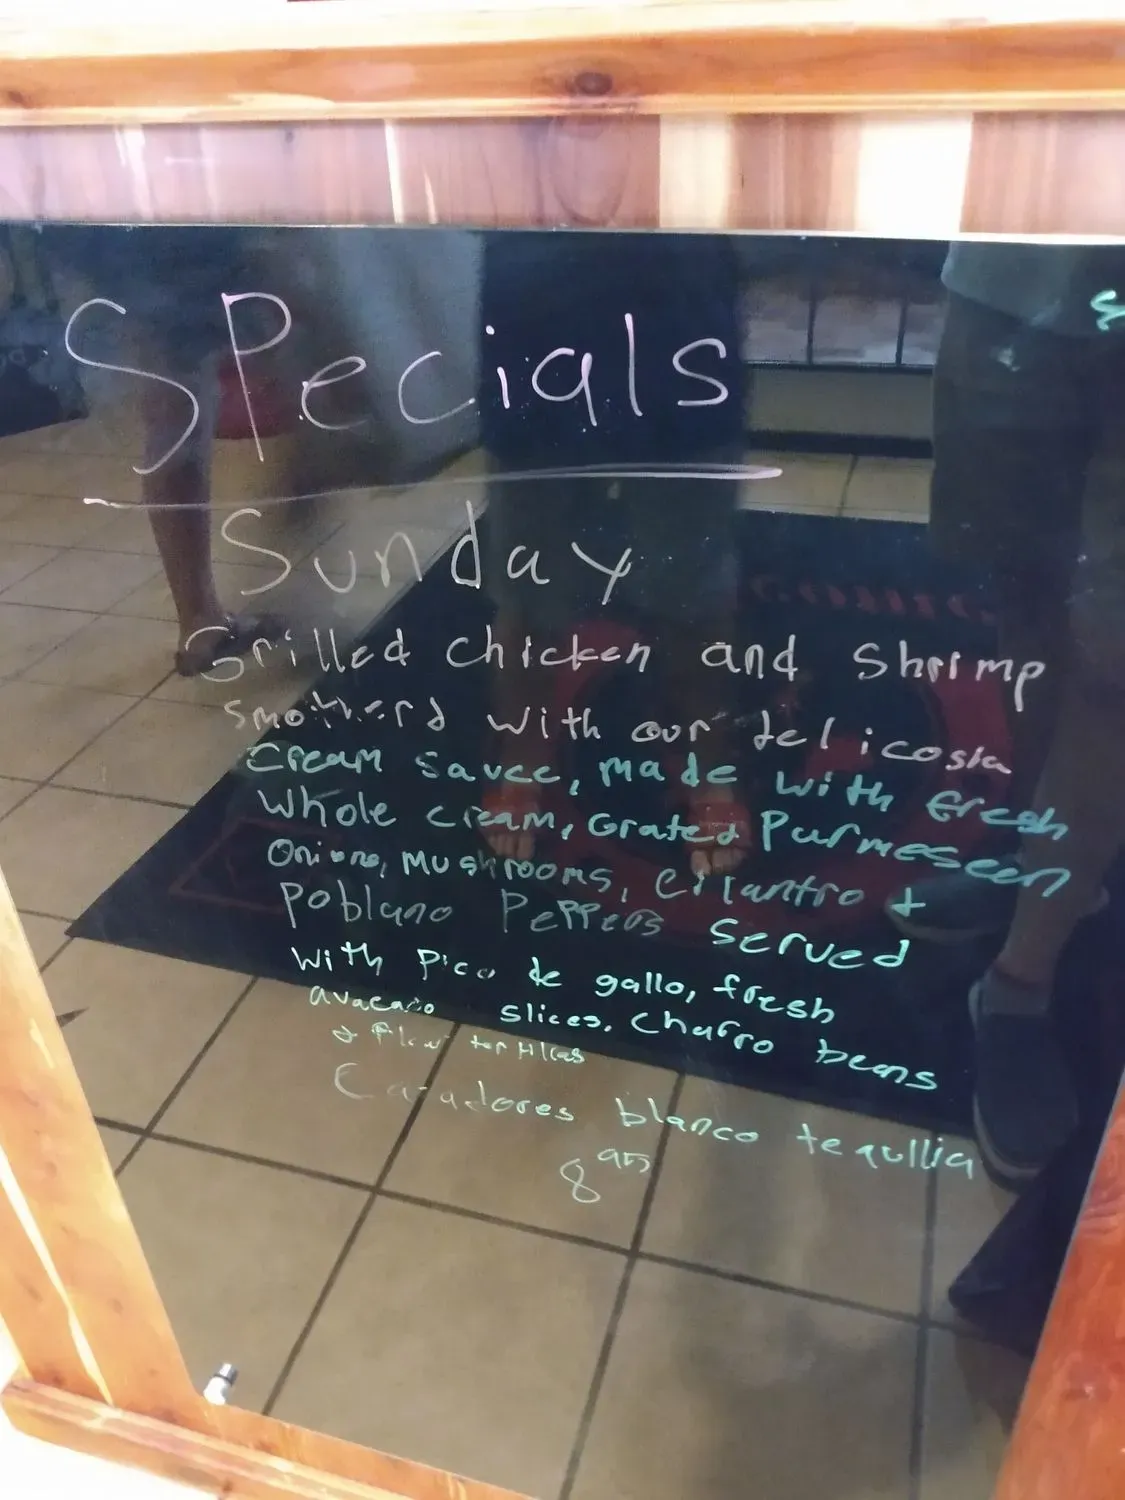 Specials
Sunday
Grilled chicken and shrimp
smotherd with our delicosia
cream sauce, made with fresh
whole cream, Grated Purmeseen
Onions, Mushrooms, cilantro +
Poblano Peppers served
with pico de gallo, fresh
avacado slices, charro beans
& flour tortillas
Cazadores blanco tequllia
8 95